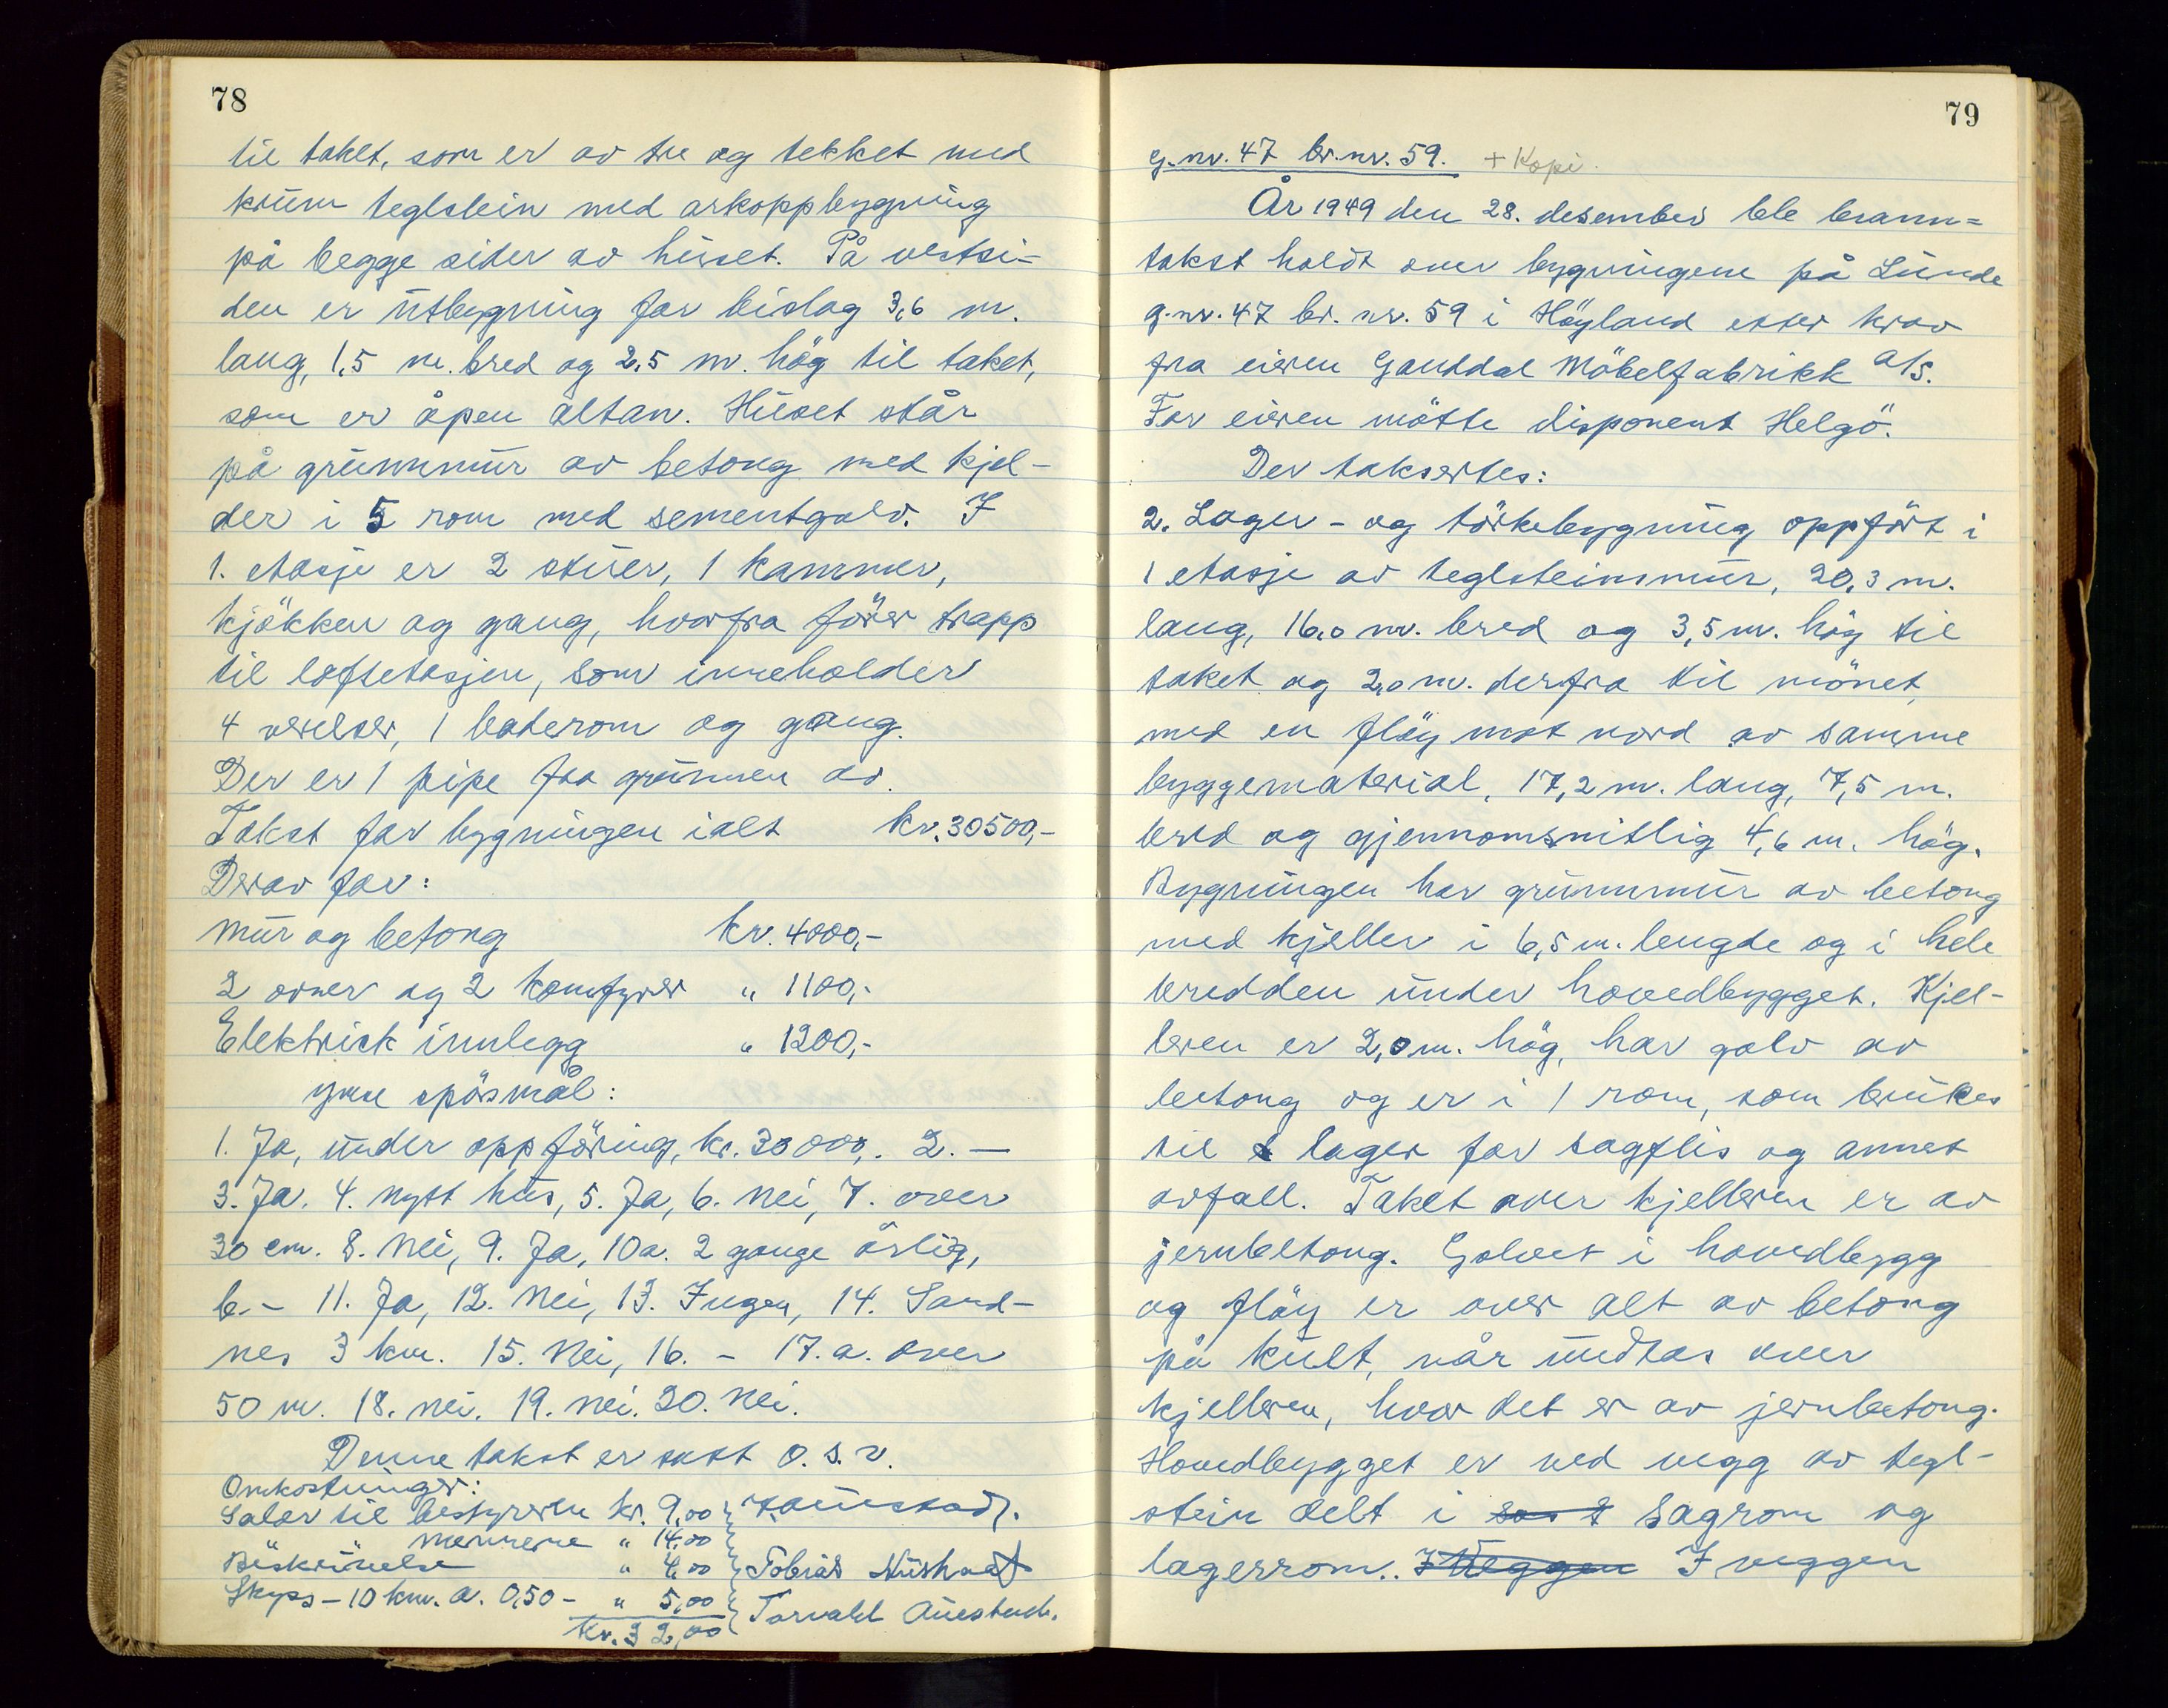 78
til taket, som er av tre og tekket med
krum teglstein med arkoppbygning
på begge sider av huset. På vestsi-
den er utbygning for bislag 3,6 m.
lang, 1,5 m. bred og 2,5 m. hög til taket,
som er åpen altan. Huset står
på grunnmur av betong med kjel-
der i 5 rom med sementgolv. I
1. etasje er 2 stuer, 1 kammer,
kjökken og gang, hvorfra förer trapp
til loftsetasjen, som inneholder
4 verelser, 1 baderom og gang.
Der er 1 pipe fra grunnen av.
Takst for bygningen ialt kr. 30500,-
Derav for:
mur og betong kr. 4000,-
2 ovner og 2 komfyrer " 1100,-
Elektrisk innlegg " 1200,-
Ymse spörsmål:
1. Ja, under oppföring, kr. 30000,. 2. —
3. Ja. 4. nytt hus, 5. Ja, 6. Nei, 7. over
30 cm. 8. Nei, 9. Ja, 10a. 2 gange årlig,
b. - 11. Ja, 12. Nei, 13. Ingen, 14. Sand-
nes 3 km. 15. Nei, 16. - 17. a. over
50 m. 18. nei. 19. nei. 20. Nei.
Denne takst er satt o. s. v.
Omkostninger:
Salær til bestyreren kr. 9,00
mennene " 14,00
Beskrivelse " 4,00 Tobias
Skyss - 10 km. a. 0,50 - " 5,00 Torvald Auestad.
kr. 32,00
79
g.nr. 47 br.nr. 59. + Kopi.
År 1949 den 28. desember ble brann=
takst holdt over bygningene på Lunde
g.nr. 47 br. nr. 59 i Höyland etter krav
fra eieren Ganddal Möbelfabrikk A/S.
For eieren mötte disponent Helgö.
Der taksertes:
2. Lager- og törkebygning oppfört i
1 etasje av teglsteinsmur, 20,3 m.
lang, 16,0 m. bred og 3,5 m. hög til
taket og 2,0 m. derfra til mönet,
med en flöy mot nord av samme
byggematerial, 17,2 m. lang, 7,5 m.
bred og gjennomsnitlig 4,6 m. hög.
Bygningen har grunnmur av betong
med kjeller i 6,5 m. lengde og i hele
bredden under hovedbygget. Kjel-
leren er 2,0 m. hög, har golv av
betong og er i 1 rom, som brukes
til lager for sagflis og annet
avfall. Taket over kjelleren er av
jernbetong. Golvet i hovedbygg
og flöy er over alt av betong
på kult, når undtas over
kjelleren, hvor det er av jernbetong.
Hovedbygget er ved vegg av tegl-
stein delt i sagrom og
lagerrom. I Veggen I veggen